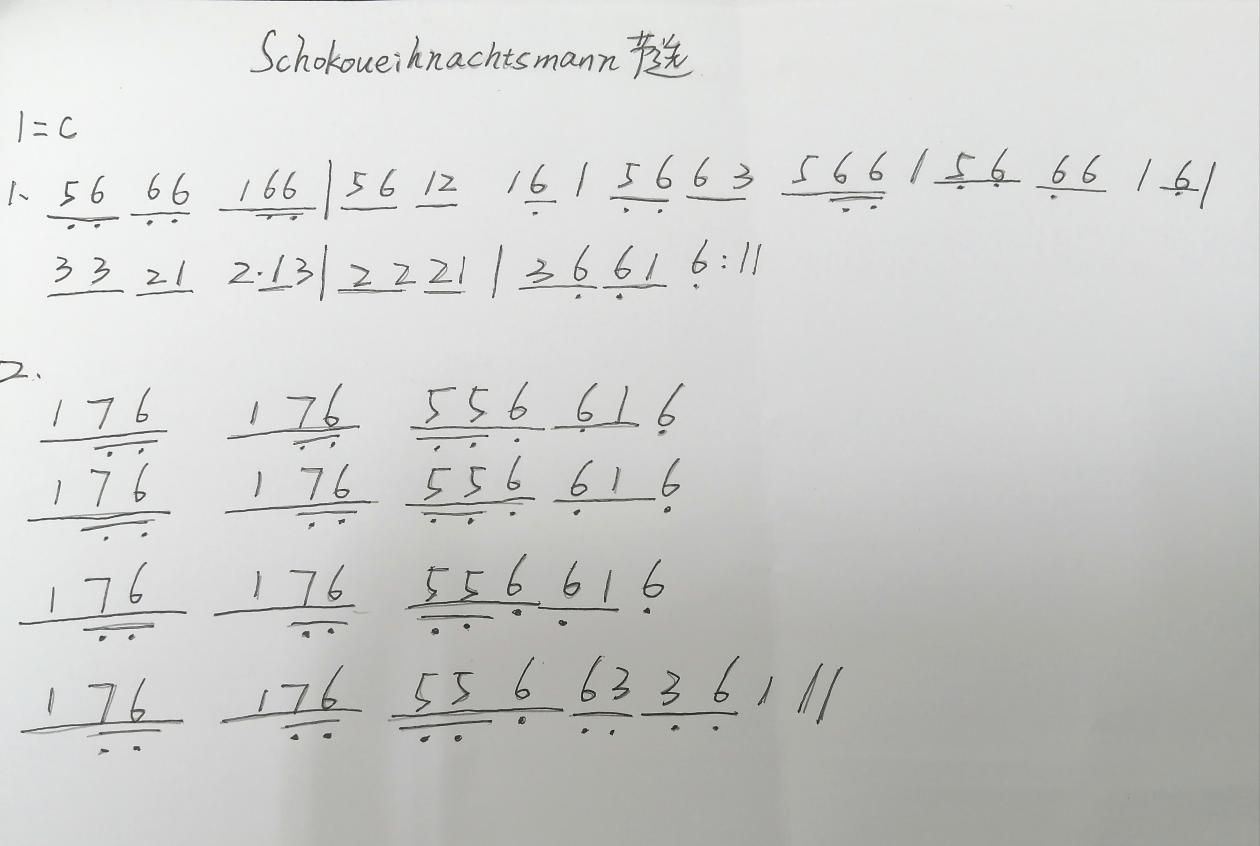 Schokoueihnachtsmann 节选
1=C
1、 56 66 166 | 56 12 16 | 56 63 566 | 56 66 16 |
33 21 2·13 | 22 21 | 36 61 6 :||
2、
176 176 556 61 6
176 176 556 61 6
176 176 556 61 6
176 176 556 63 36 1 ||